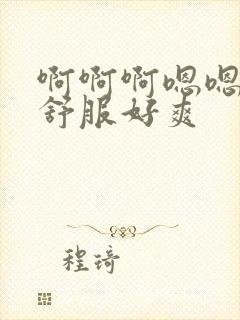 啊啊啊嗯嗯
舒服好爽
程琦